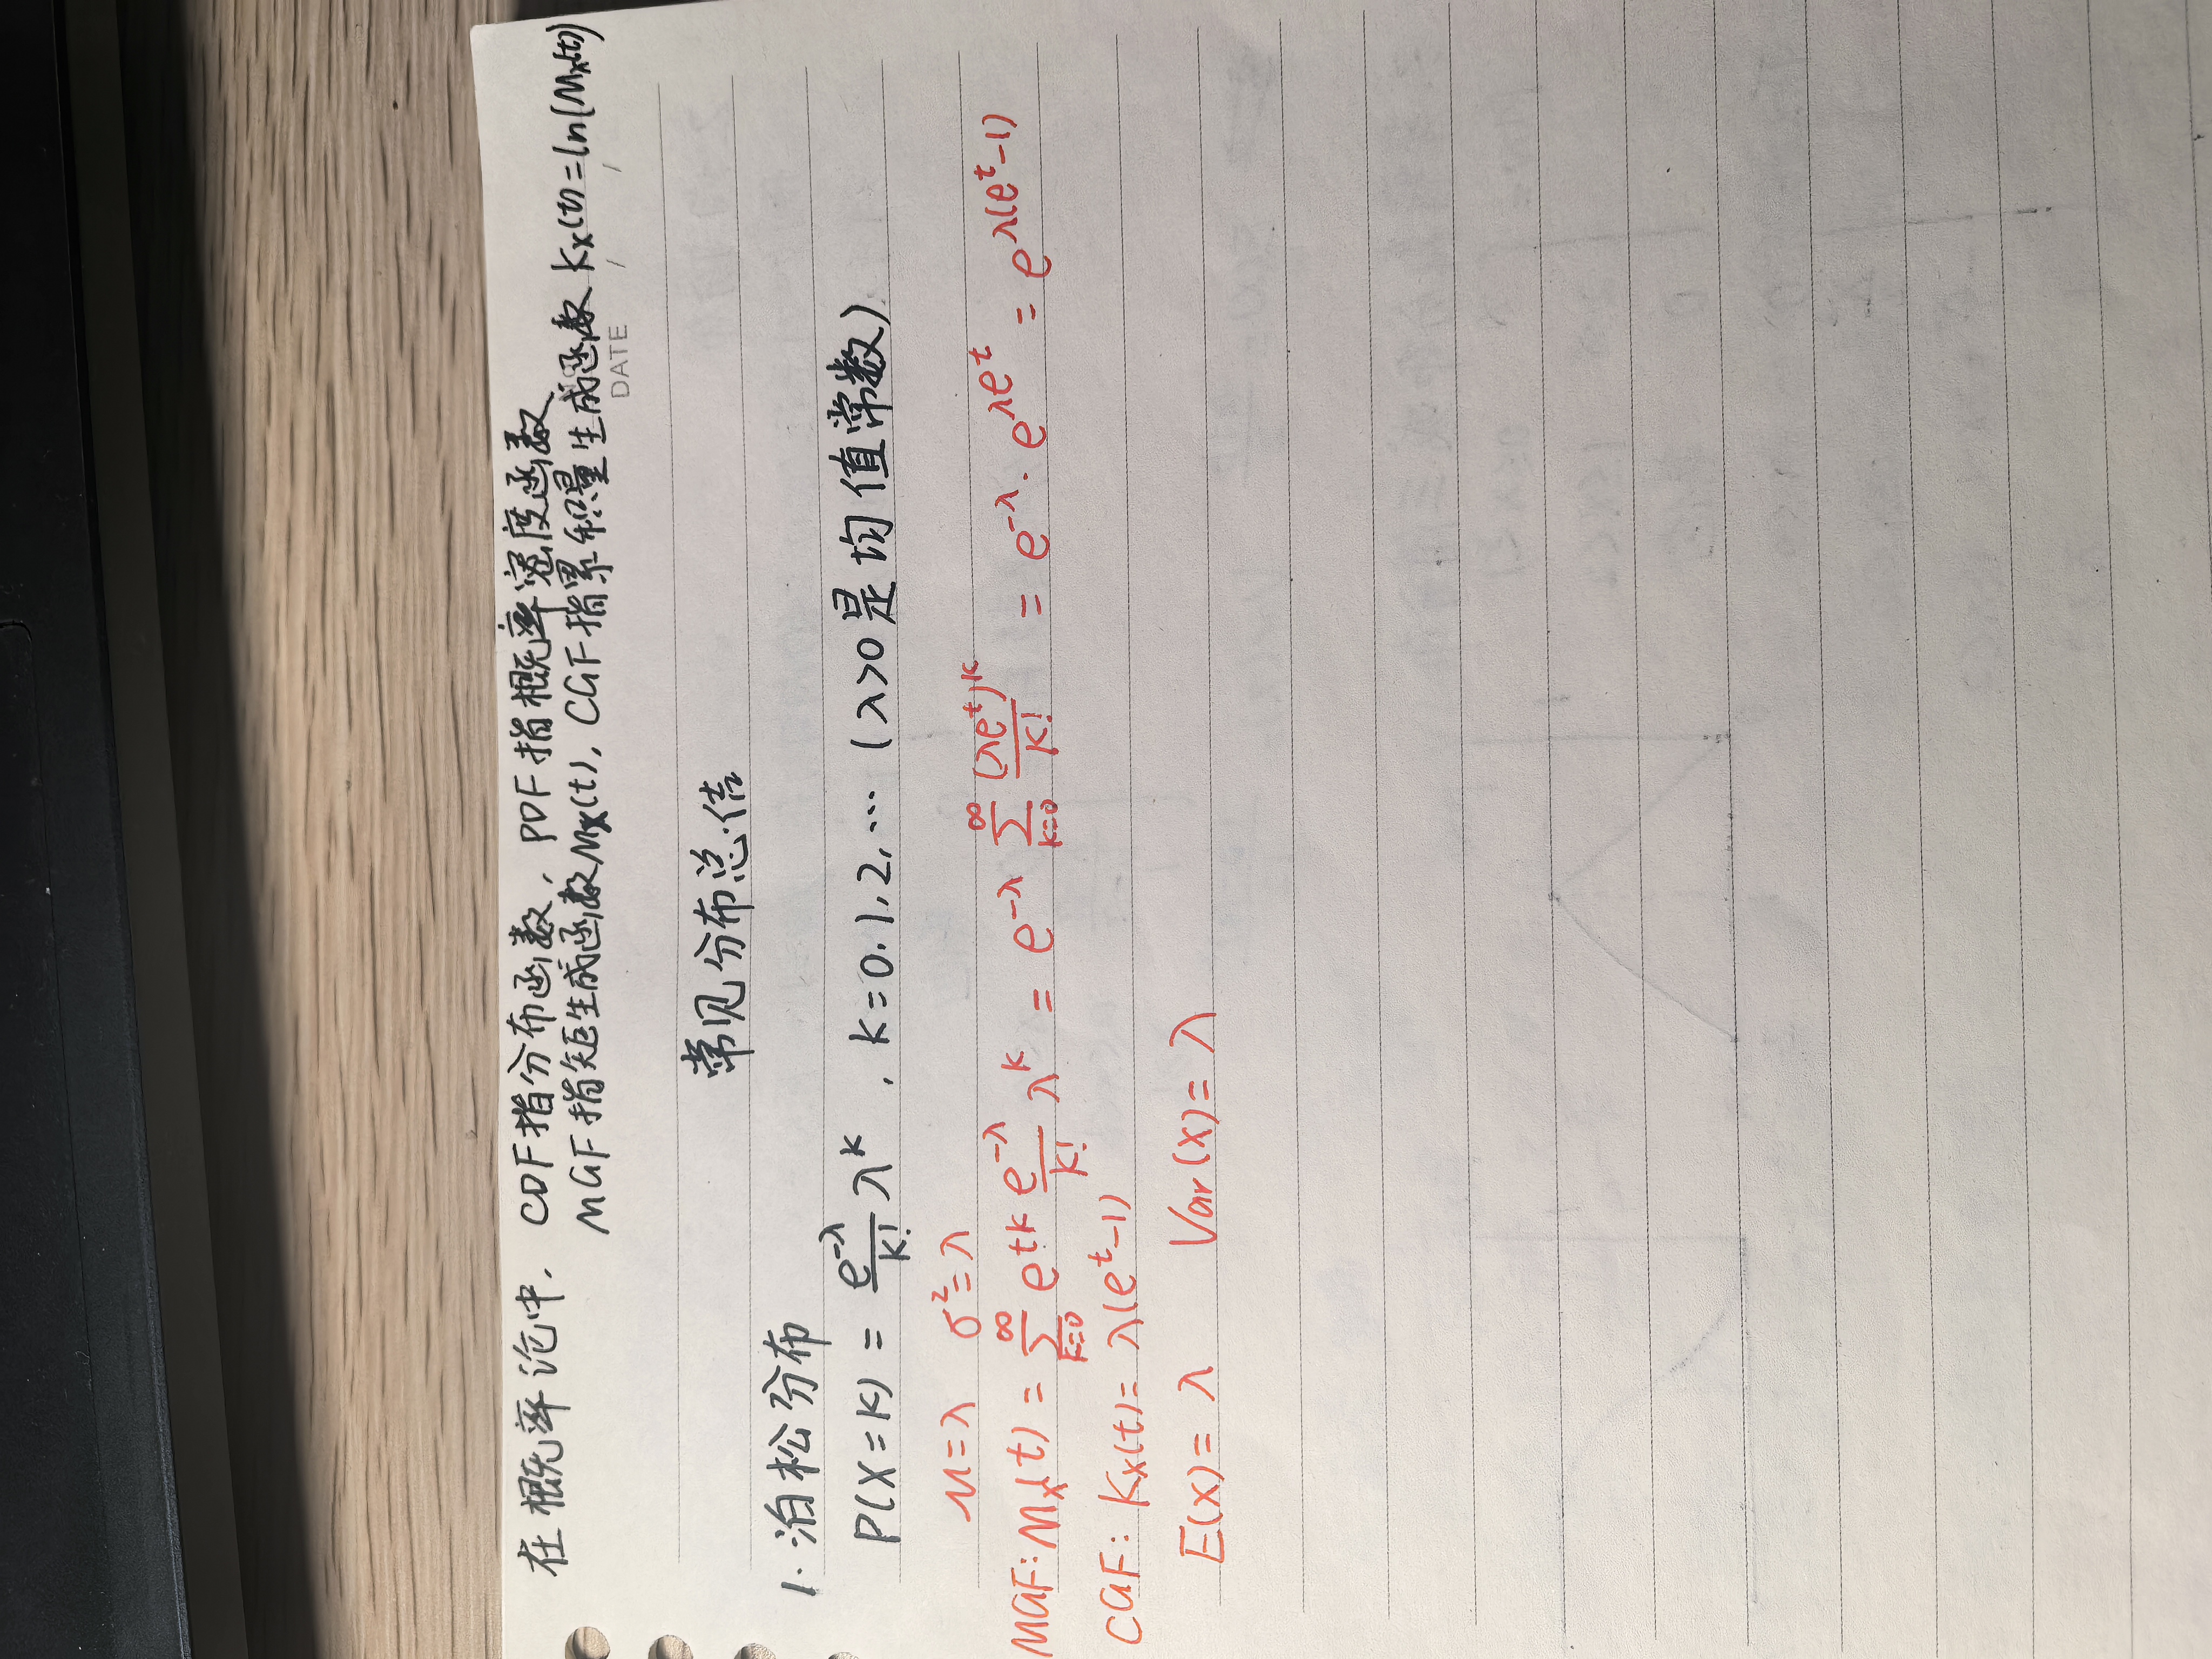 在概率论中, CDF指分布函数, PDF指概率密度函数
MGF指矩生成函数Mx(t), CGF指累积量生成函数 Kx(t)=ln(Mx(t))
DATE / /
常见分布总结
1. 泊松分布
P(X=k) = e^{-λ}/k! λ^k , k=0,1,2,… (λ>0是均值常数)
μ=λ σ²=λ
MGF: Mx(t) = ∑_{k=0}^{∞} e^{tk} e^{-λ}/k! λ^k = e^{-λ} ∑_{k=0}^{∞} (λe^t)^k/k! = e^{-λ}·e^{λe^t} = e^{λ(e^t-1)}
CGF: Kx(t)= λ(e^t-1)
E(X)= λ Var(X)= λ